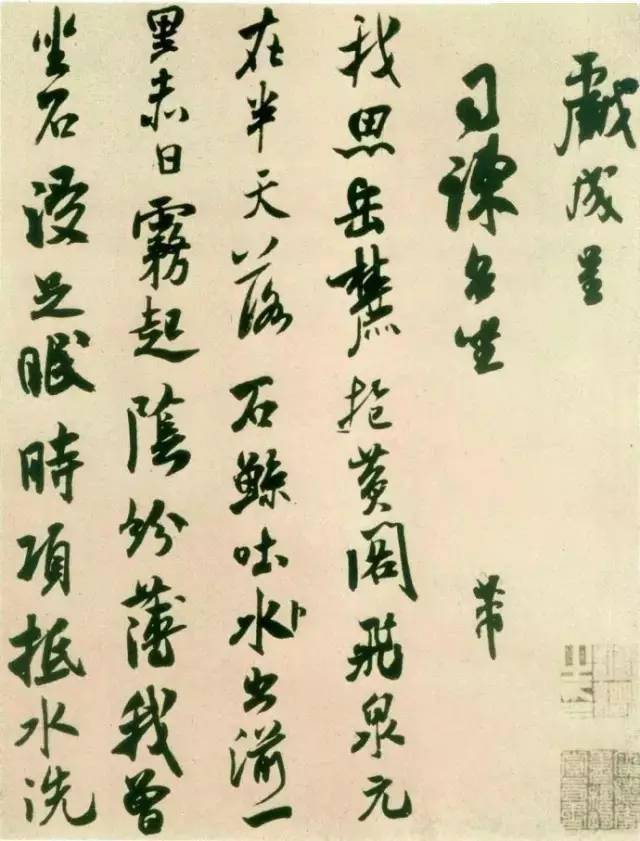 戲成呈
司諫台坐 芾
我思岳麓抱黄閣飛泉元
在半天落石鯨吐水出湔一
里赤日霧起隂紛薄我曾
坐石浸足眠時項抵水洗